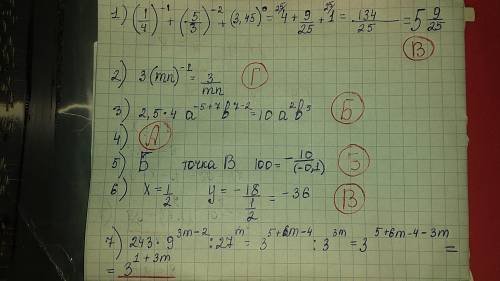 1) (1/4)^-1 + (-5/3)^-2 + (3,45)^0 = ^25/4 + 9/25 + ^25/1 = 134/25 = 5 9/25
В
2) 3(mn)^-1 = 3/mn Г
3) 2,5·4 a^-5+7 b^7-2 = 10 a^2 b^5 Б
4) А
5) Б точка В 100 = -10/(-0,1) Б
6) x = 1/2 y = -18/(1/2) = -36 В
7) 243·9^3m-2 : 27^m = 3^5+6m-4 : 3^3m = 3^5+6m-4-3m =
= 3^1+3m